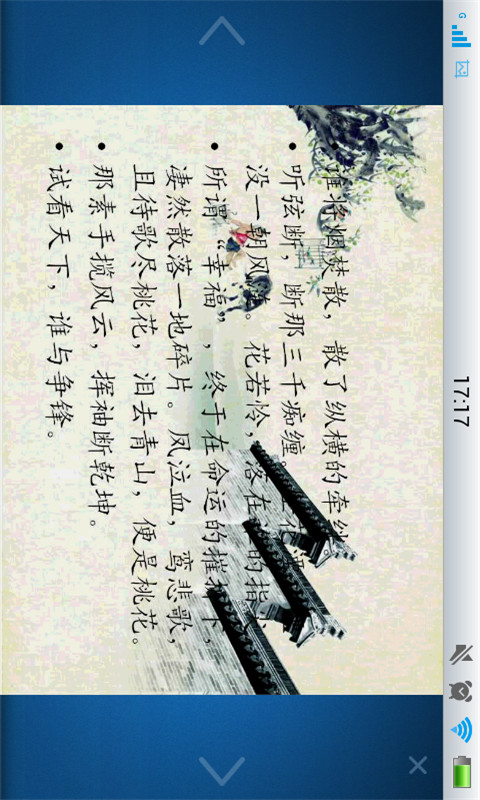 G 17:17
谁将烟焚散，散了纵横的牵绊。
• 听弦断，断那三千痴缠。
没一朝风涟。花若怜，落在的指尖
• 所谓“幸福”，终于在命运的摧下，
凄然散落一地碎片。凤泣血，鸾悲歌，
且待歌尽桃花，泪去青山，便是桃花。
• 那素手揽风云，挥袖断乾坤。
• 试看天下，谁与争锋。